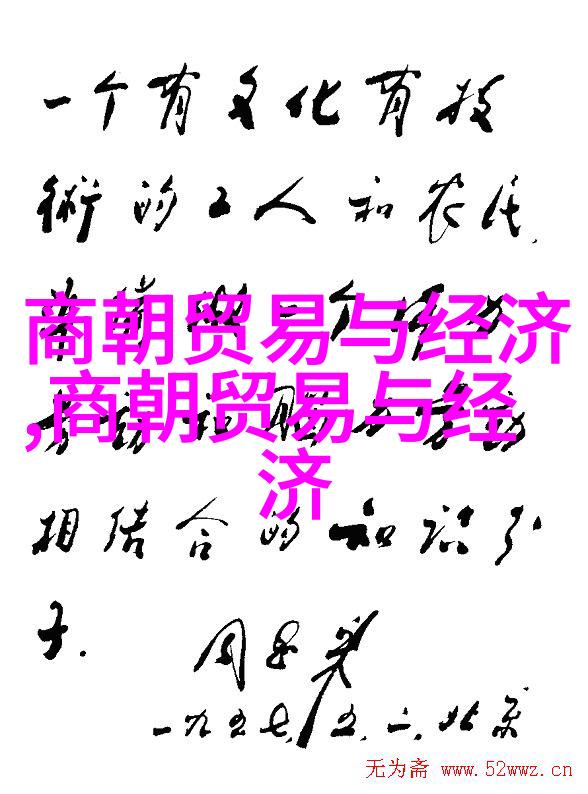 一个有文化有技
術的工人和农民,
商朝贸易与经济
,商朝贸易与经
济
相结合的知识分
子.
周恩来
一九五七,五, 北京
无为斋 www.52wwz.cn